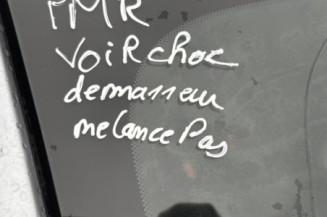 PMR
VOIR choc
demarreur
me lance Pas